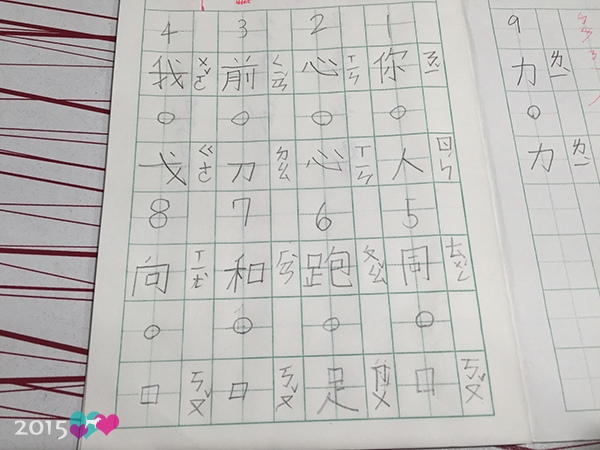 1 你 ㄋㄧˇ ○ 人 ㄖㄣˊ
2 心 ㄒㄧㄣ ○ 心 ㄒㄧㄣ
3 前 ㄑㄧㄢˊ ○ 刀 ㄉㄠ
4 我 ㄨㄛˇ ○ 戈 ㄍㄜ
5 同 ㄊㄨㄥˊ ○ 口 ㄎㄡˇ
6 跑 ㄆㄠˇ ○ 足 ㄗㄨˊ
7 和 ㄏㄜˊ ○ 口 ㄎㄡˇ
8 向 ㄒㄧㄤˋ ○ 口 ㄎㄡˇ
9 力 ㄌㄧˋ ○ 力 ㄌㄧˋ
2015